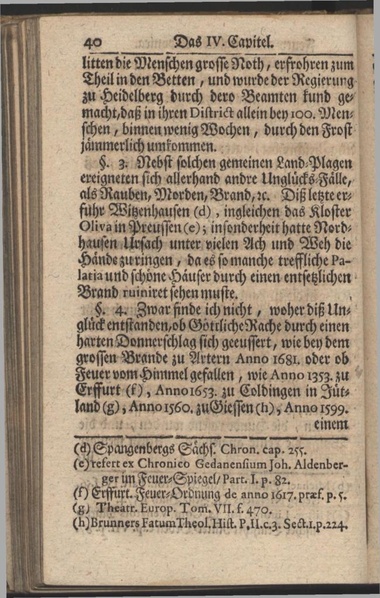 40 Das IV. Capitel.
litten die Menschen grosse Noth, erfrohren zum
Theil in den Betten, und wurde der Regierung
zu Heidelberg durch dero Beamten kund ge-
macht, daß in ihren District allein bey 100. Men-
schen, binnen wenig Wochen, durch den Frost
jämmerlich umkommen.
§. 3. Nebst solchen gemeinen Land-Plagen
ereigneten sich allerhand andre Unglücks-Fälle,
als Rauben, Morden, Brand, ꝛc. Diß letzte er-
fuhr Witzenhausen (d), ingleichen das Kloster
Oliva in Preussen (e); insonderheit hatte Nord-
hausen Ursach unter vielen Ach und Weh die
Hände zu ringen, da es so manche treffliche Pa-
latia und schöne Häuser durch einen entsetzlichen
Brand ruiniret sehen muste.
§. 4. Zwar finde ich nicht, woher diß Un-
glück entstanden, ob Göttliche Rache durch einen
harten Donnerschlag sich geeussert, wie bey dem
grossen Brande zu Artern Anno 1681. oder ob
Feuer vom Himmel gefallen, wie Anno 1353. zu
Erffurt (f), Anno 1653. zu Coldingen in Jüt-
land (g), Anno 1560. zu Giessen (h), Anno 1599.
einem
(d) Spangenbergs Sächs. Chron. cap. 255.
(e) refert ex Chronico Gedanensium Joh. Aldenber-
ger im Feuer-Spiegel/ Part. I. p. 82.
(f) Erffurt. Feuer-Ordnung de anno 1617. præf. p. 5.
(g) Theatr. Europ. Tom. VII. f. 470.
(h) Brunners Fatum Theol. Hist. P. II. c. 3. Sect. 1. p. 224.